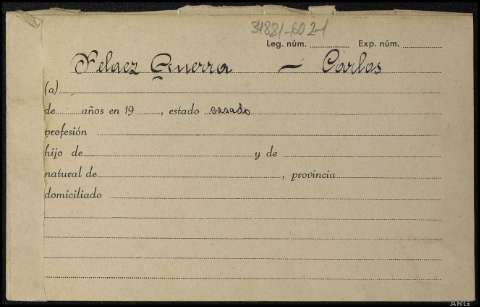 31881-6024
Leg. núm. Exp. núm.
Pelaez Guerra — Carlos
(a)
de años en 19 , estado casado
profesión
hijo de y de
natural de , provincia
domiciliado
ARG